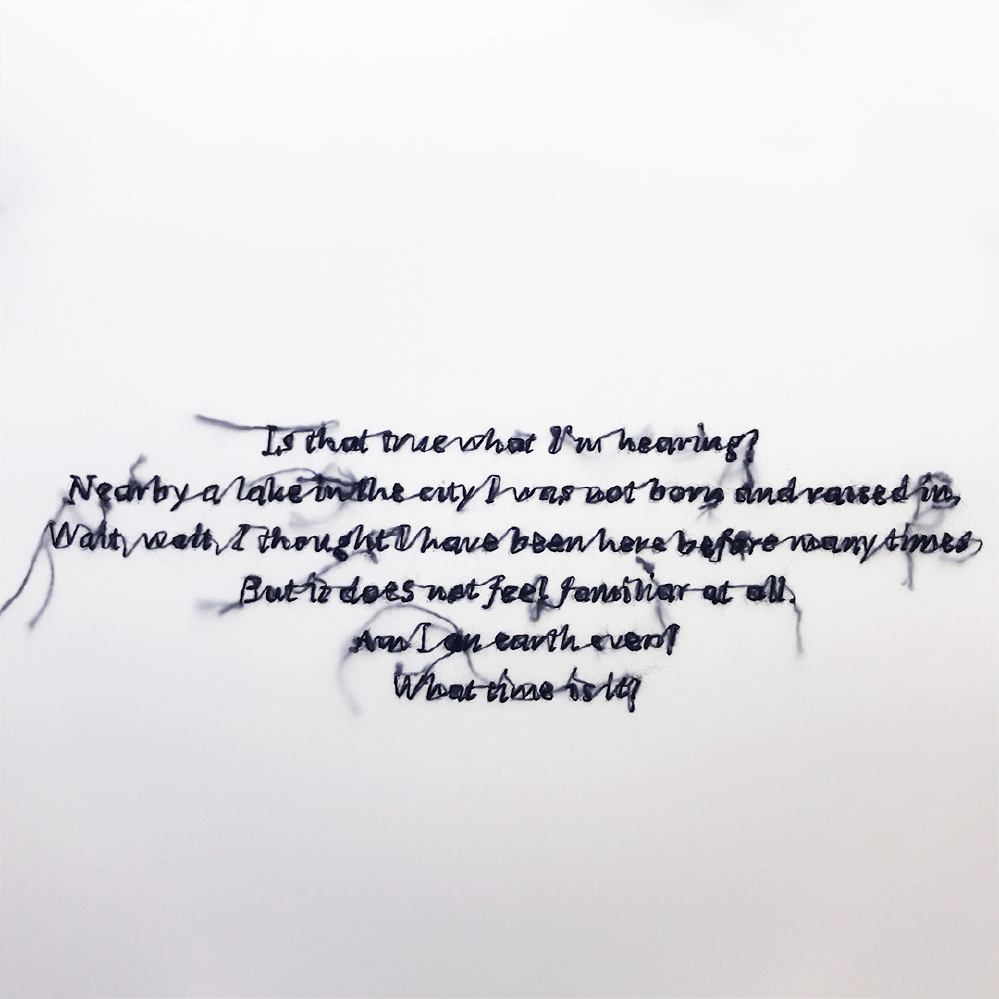 Is that true what I'm hearing?
Nearby a lake in the city I was not born and raised in,
Wait, wait, I thought I have been here before many times,
But it does not feel familiar at all.
Am I on earth even?
What time is it?